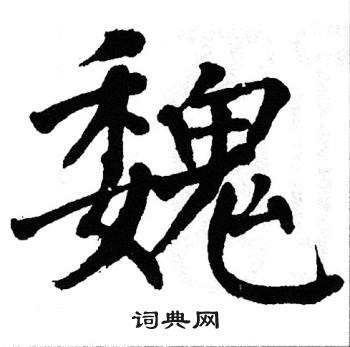 魏
词典网